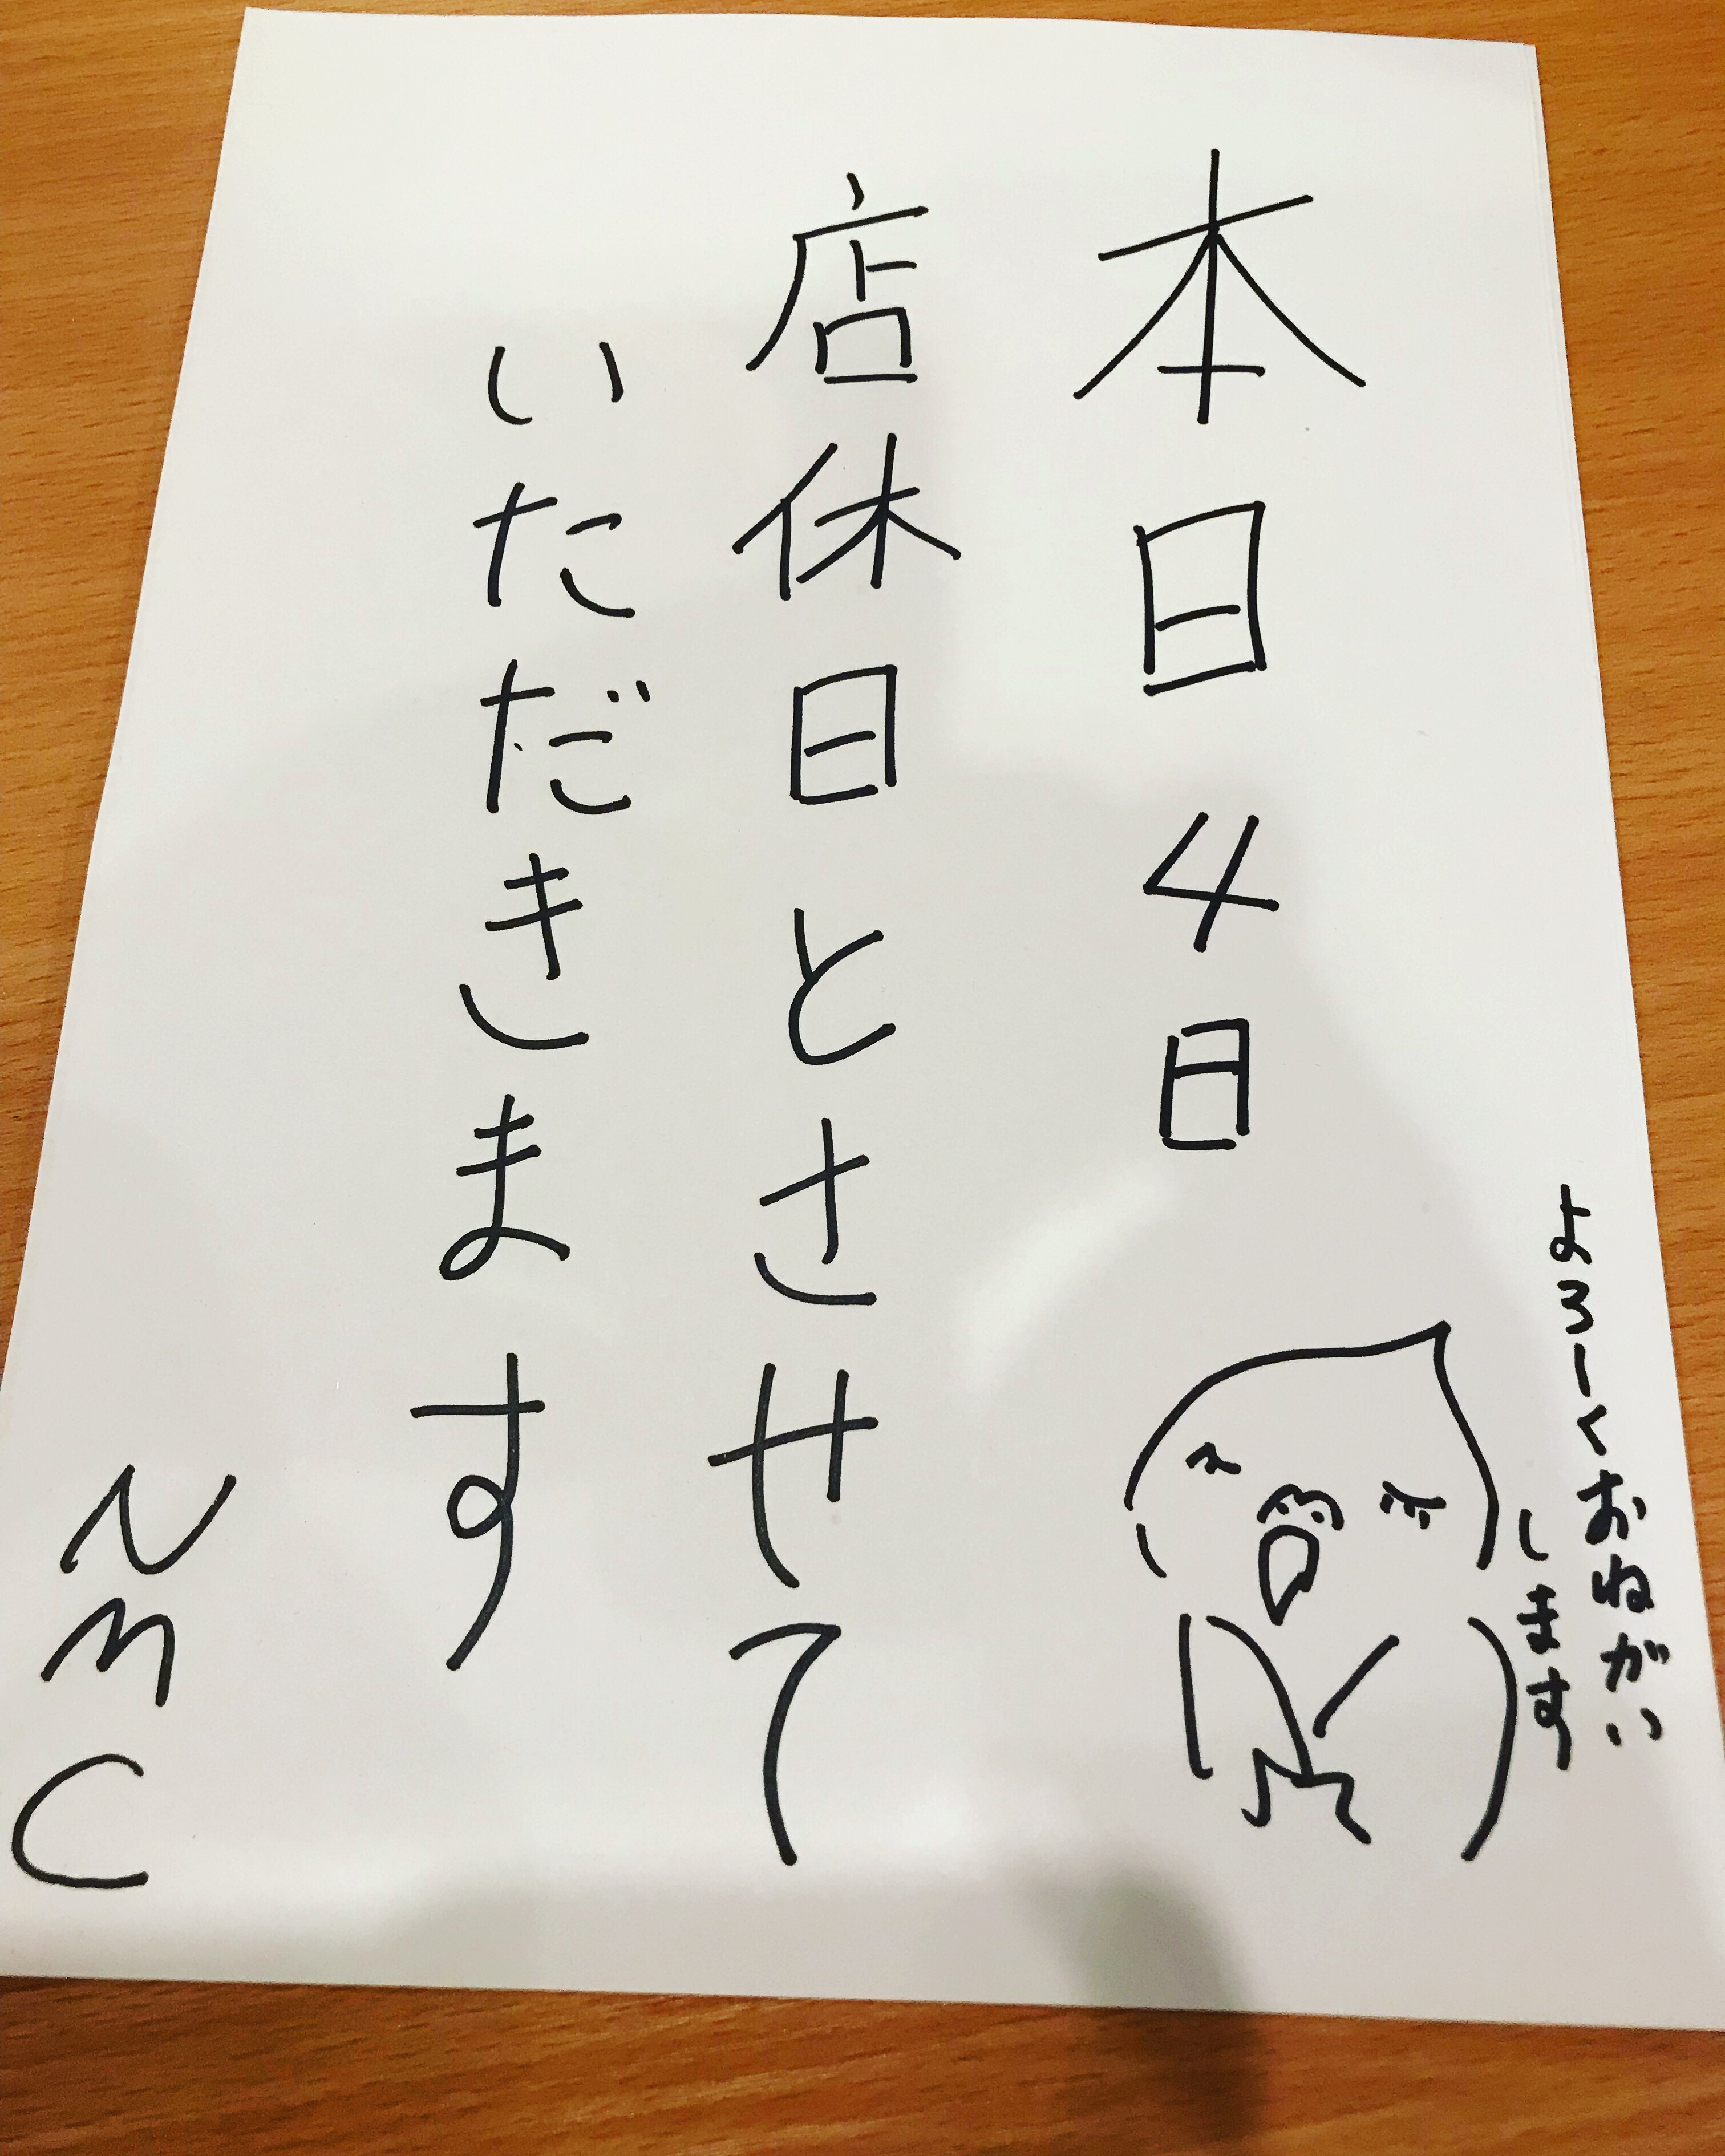 本日4日
店休日とさせて
いただきます
NMC
よろしくおねがい
します